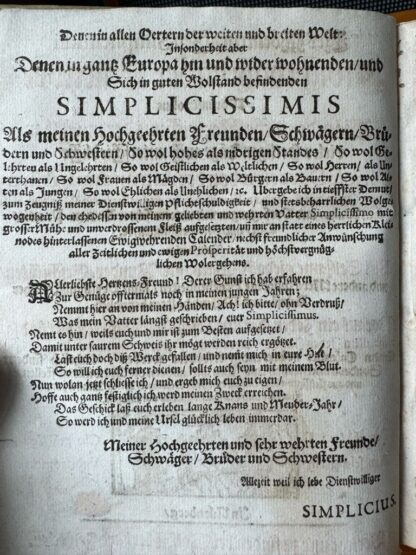 Denen in allen Oertern der weiten und breiten Welt/
Insonderheit aber
Denen in gantz Europa hin und wider wohnenden/und
Sich in guten Wolstand befindenden
SIMPLICISSIMIS
Als meinen Hochgeehrten Freunden/Schwägern/Brü-
dern und Schwestern/ So wol hohes als nidrigen Standes/ So wol Ge-
lehrten als Ungelehrten/ So wol Geistlichen als Weltlichen/ So wol Herren/ als Un-
terthanen/ So wol Frauen als Mägden/ So wol Bürgern als Bauern/ So wol Al-
ten als Jungen/ So wol Ehlichen als Unehlichen/ ꝛc. Ubergebe ich in tieffster Demut/
zum Zeugniß meiner Dienstwilligen Pflichtschuldigkeit/ und stetsbeharrlichen Wolge-
wogenheit/ den chedessen von meinem geliebten und wehrten Vatter Simplicissimo mit
grosser Mühe und unverdrossenem Fleiß aufgesetzten/ uñ mir an statt eines herrlichen Klei-
nodes hinterlassenen Ewigwehrenden Calender/ nechst freundlicher Anwünschung
aller Zeitlichen und ewigen Prosperität und höchstvergnüg-
lichen Wolergehens.
Allerliebste Hertzens-Freund! Derer Gunst ich hab erfahren
Zur Genüge offtermals noch in meinen jungen Jahren;
Nemmt hier an von meinen Händen/ Ach! ich bitte/ ohn Verdruß/
Was mein Vatter längst geschrieben/ euer Simplicissimus.
Nemt es hin/ weils euch und mir ist zum Besten aufgesetzet/
Damit unter saurem Schweis ihr mögt werden reich ergötzet.
Lasst euch doch diß Werck gefallen/ und nemt mich in eure Hut/
So will ich euch ferner dienen/ sollts auch seyn mit meinem Blut.
Nun wolan jetzt schliesse ich/ und ergeb mich euch zu eigen/
Hoffe auch gantz festiglich ich werd meinen Zweck erreichen.
Das Geschick laß euch erleben lange Knans und Meuder-Jahr/
So werd ich und meine Ursel glücklich leben immerdar.
Meiner Hochgeehrten und sehr wehrten Freunde/
Schwäger/ Brüder und Schwestern.
Allezeit weil ich lebe Dienstwilliger
SIMPLICIUS.